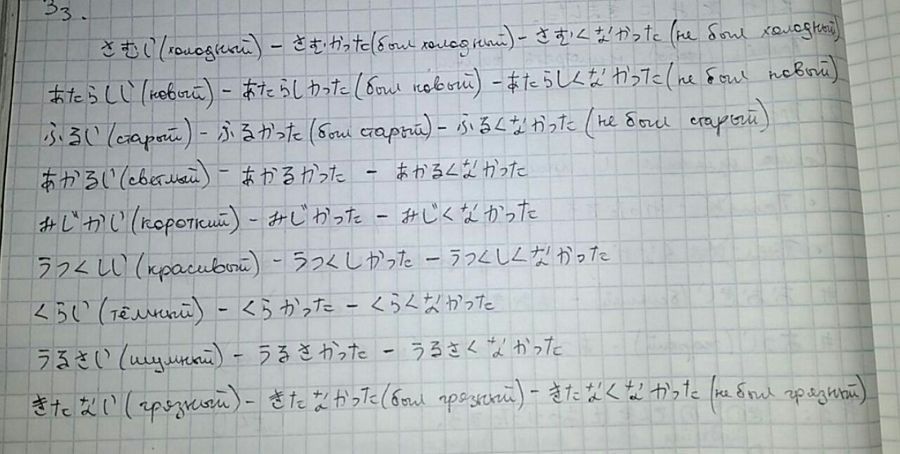 33.
さむい (холодный) – さむかった (был холодный) – さむくなかった (не был холодный)
あたらしい (новый) – あたらしかった (был новый) – あたらしくなかった (не был новый)
ふるい (старый) – ふるかった (был старый) – ふるくなかった (не был старый)
あかるい (светлый) – あかるかった – あかるくなかった
みじかい (короткий) – みじかった – みじくなかった
うつくしい (красивый) – うつくしかった – うつくしくなかった
くらい (тёмный) – くらかった – くらくなかった
うるさい (шумный) – うるさかった – うるさくなかった
きたない (грязный) – きたなかった (был грязный) – きたなくなかった (не был грязный)